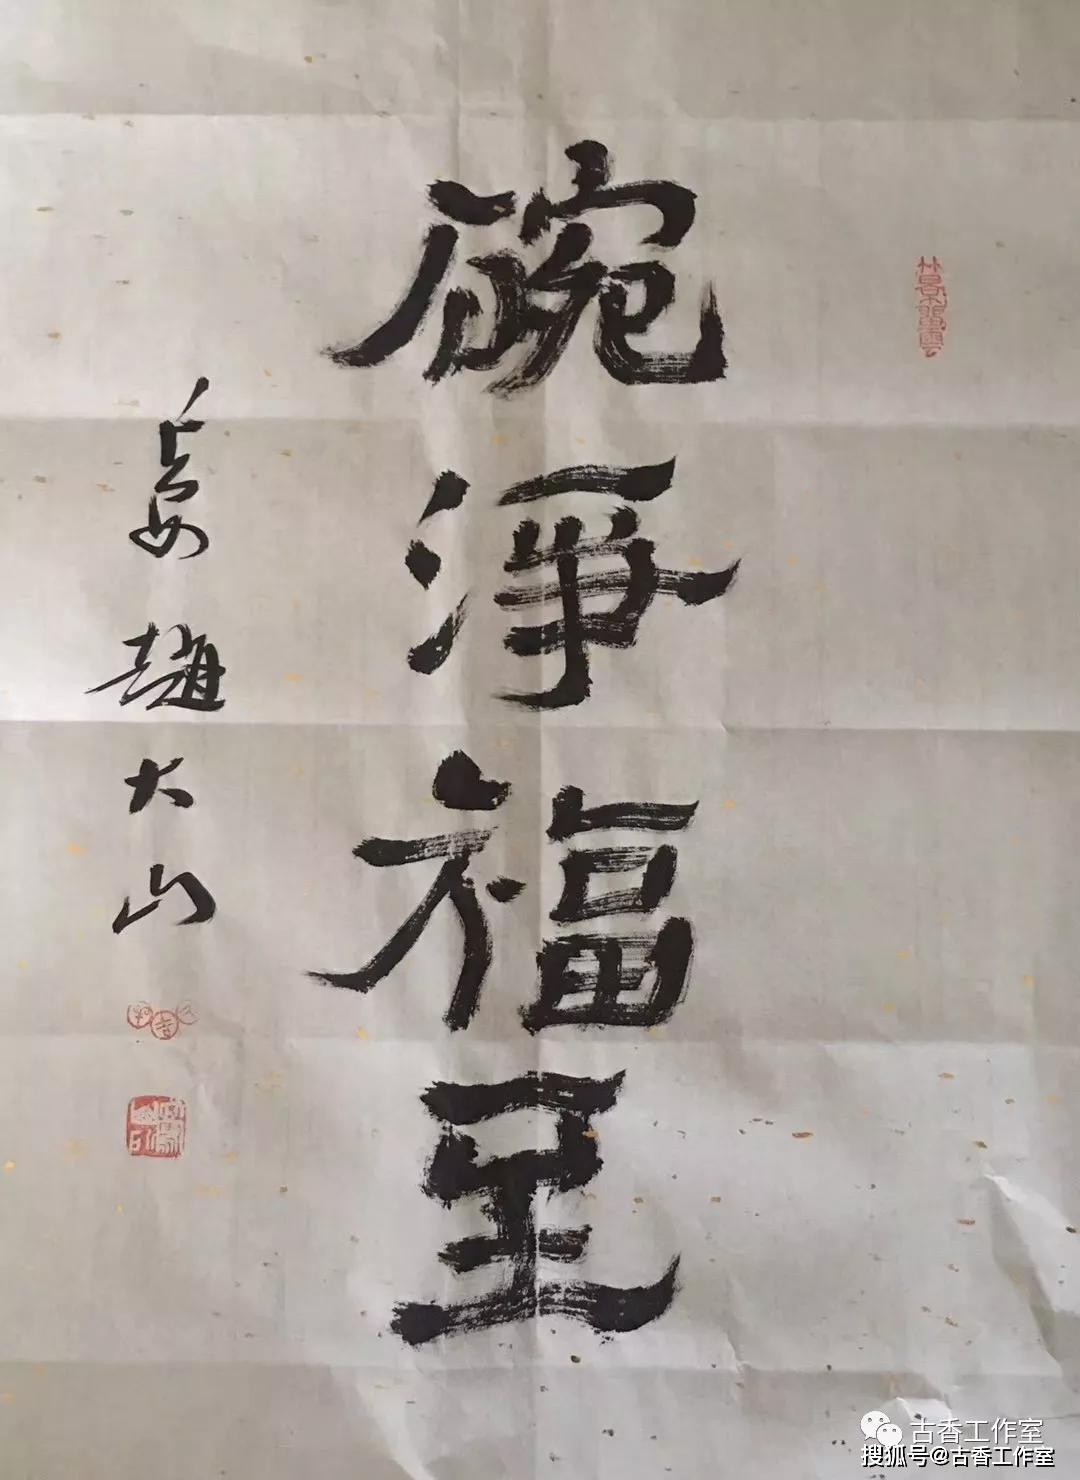 碗淨福至
趙大山
古香工作室
搜狐号@古香工作室